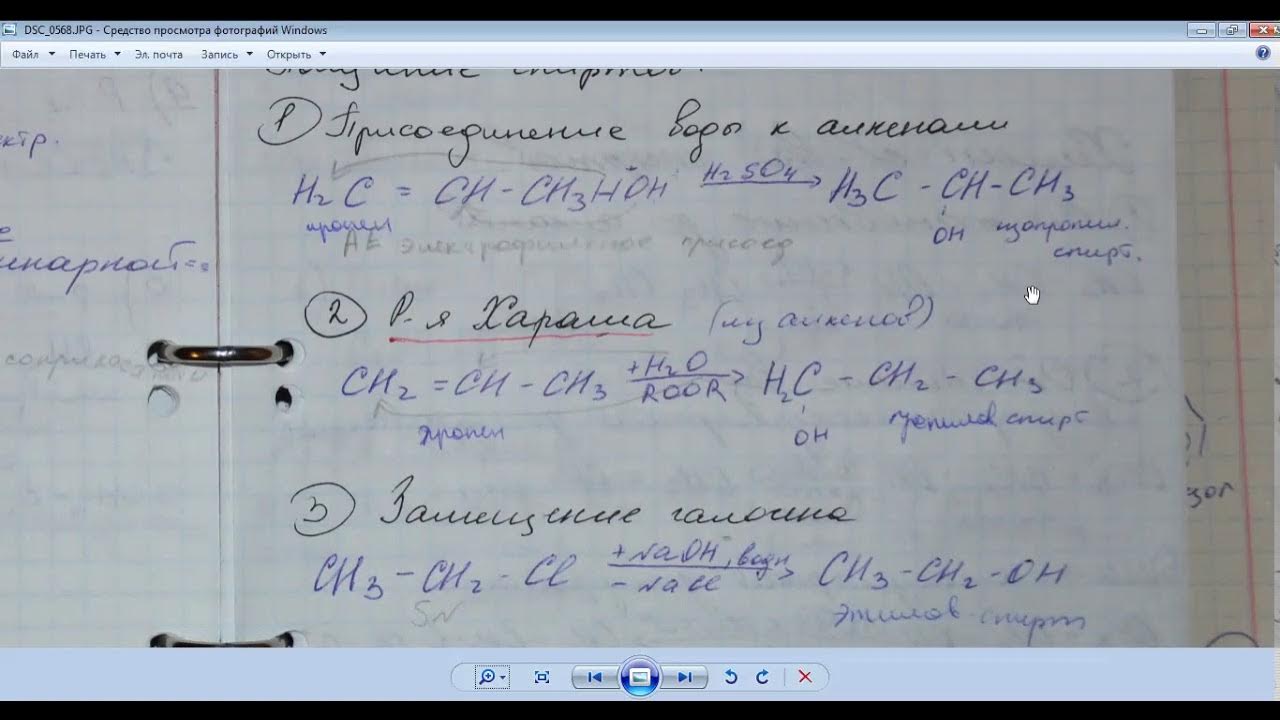 DSC_0568.JPG - Средство просмотра фотографий Windows
Файл Печать Эл. почта Запись Открыть
спиртов.
1) Присоединение воды к алкенам
H2C = CH - CH3 + HOH H2SO4 → H3C - CH - CH3
OH
пропен
изопропил.
спирт.
AE электрофильное присоед
2) Р-я Хараша (из алкенов)
CH2 = CH - CH3 +H2O ROOR → H2C - CH2 - CH3
OH
пропен
пропилов спирт
3) Замещение галогена
CH3 - CH2 - Cl +NaOH, водн - NaCl → CH3 - CH2 - OH
SN
этилов. спирт
ектр.
инарной